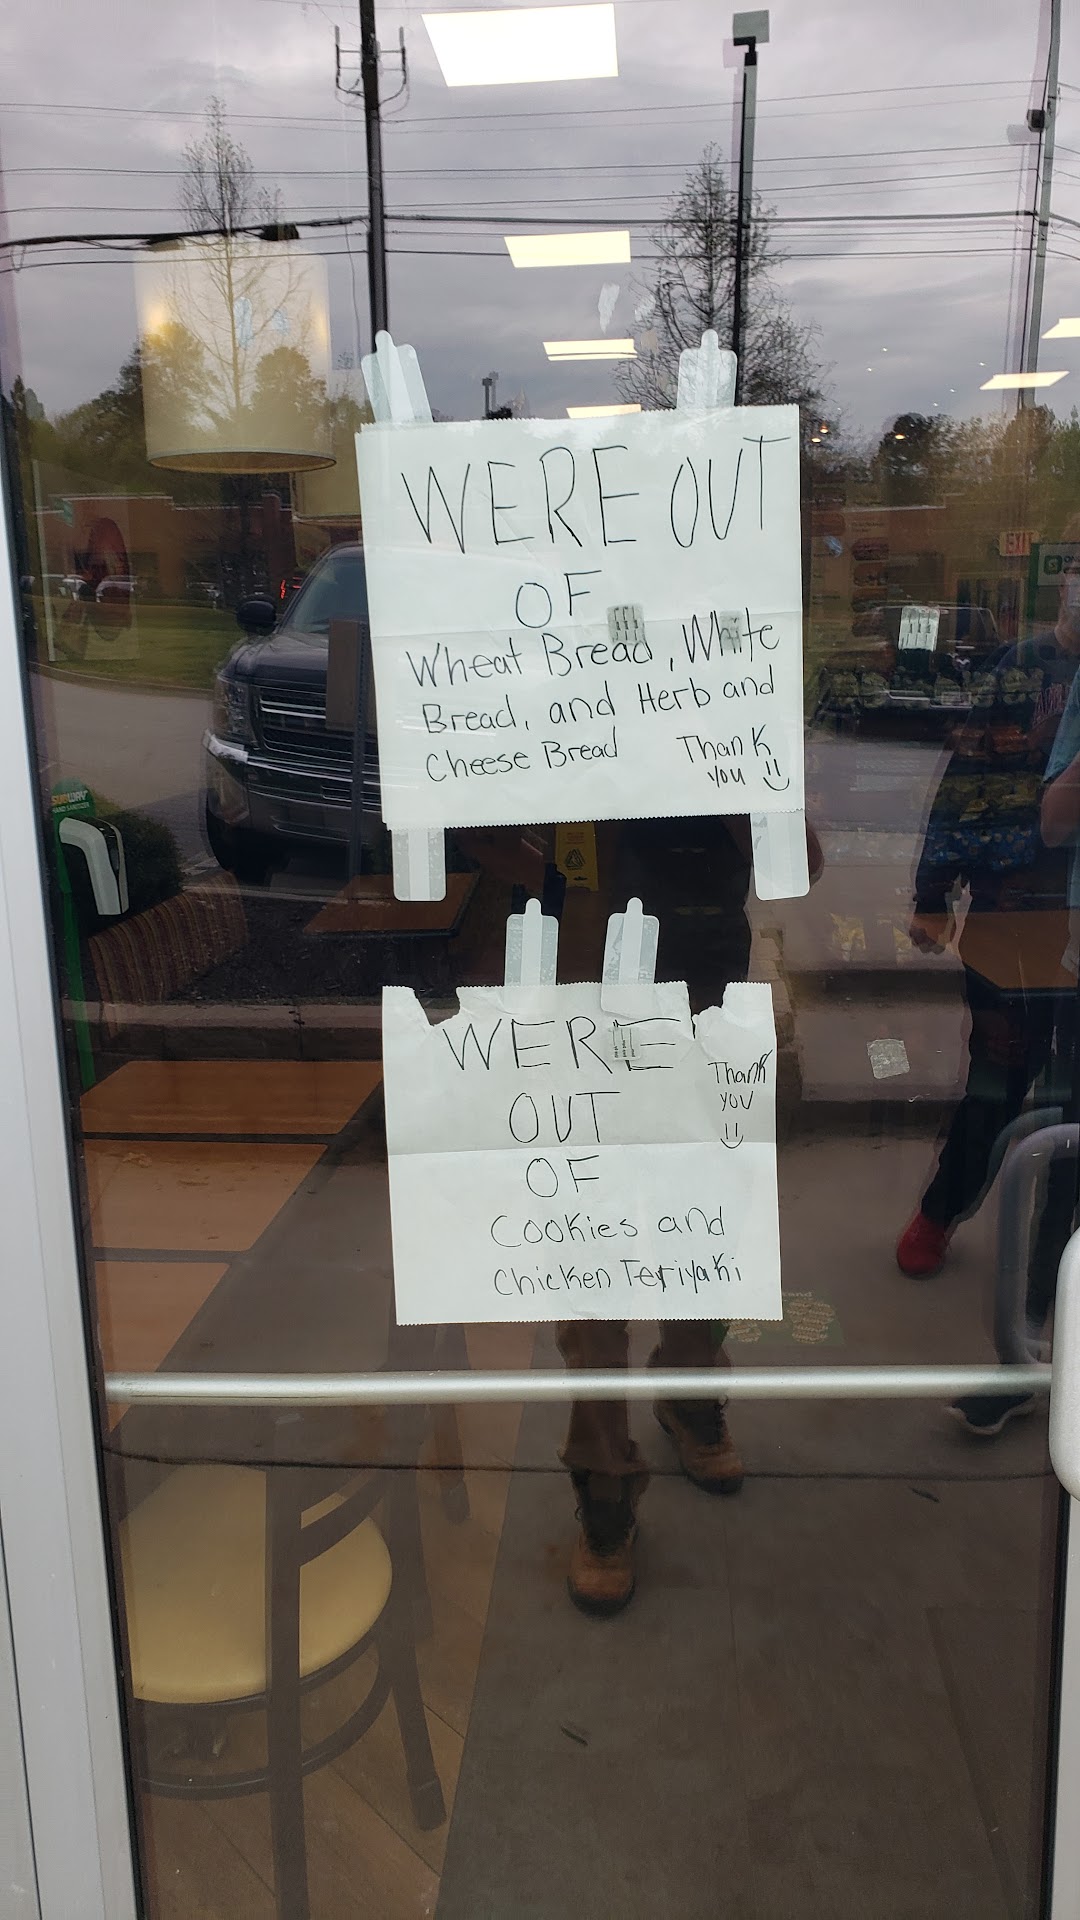 WERE OUT
OF
Wheat Bread, White
Bread, and Herb and
Cheese Bread
Thank
you
WERE
OUT
OF
Cookies and
Chicken Teriyaki
Thank
you
SUBWAY
HAND SANITIZER
EXIT